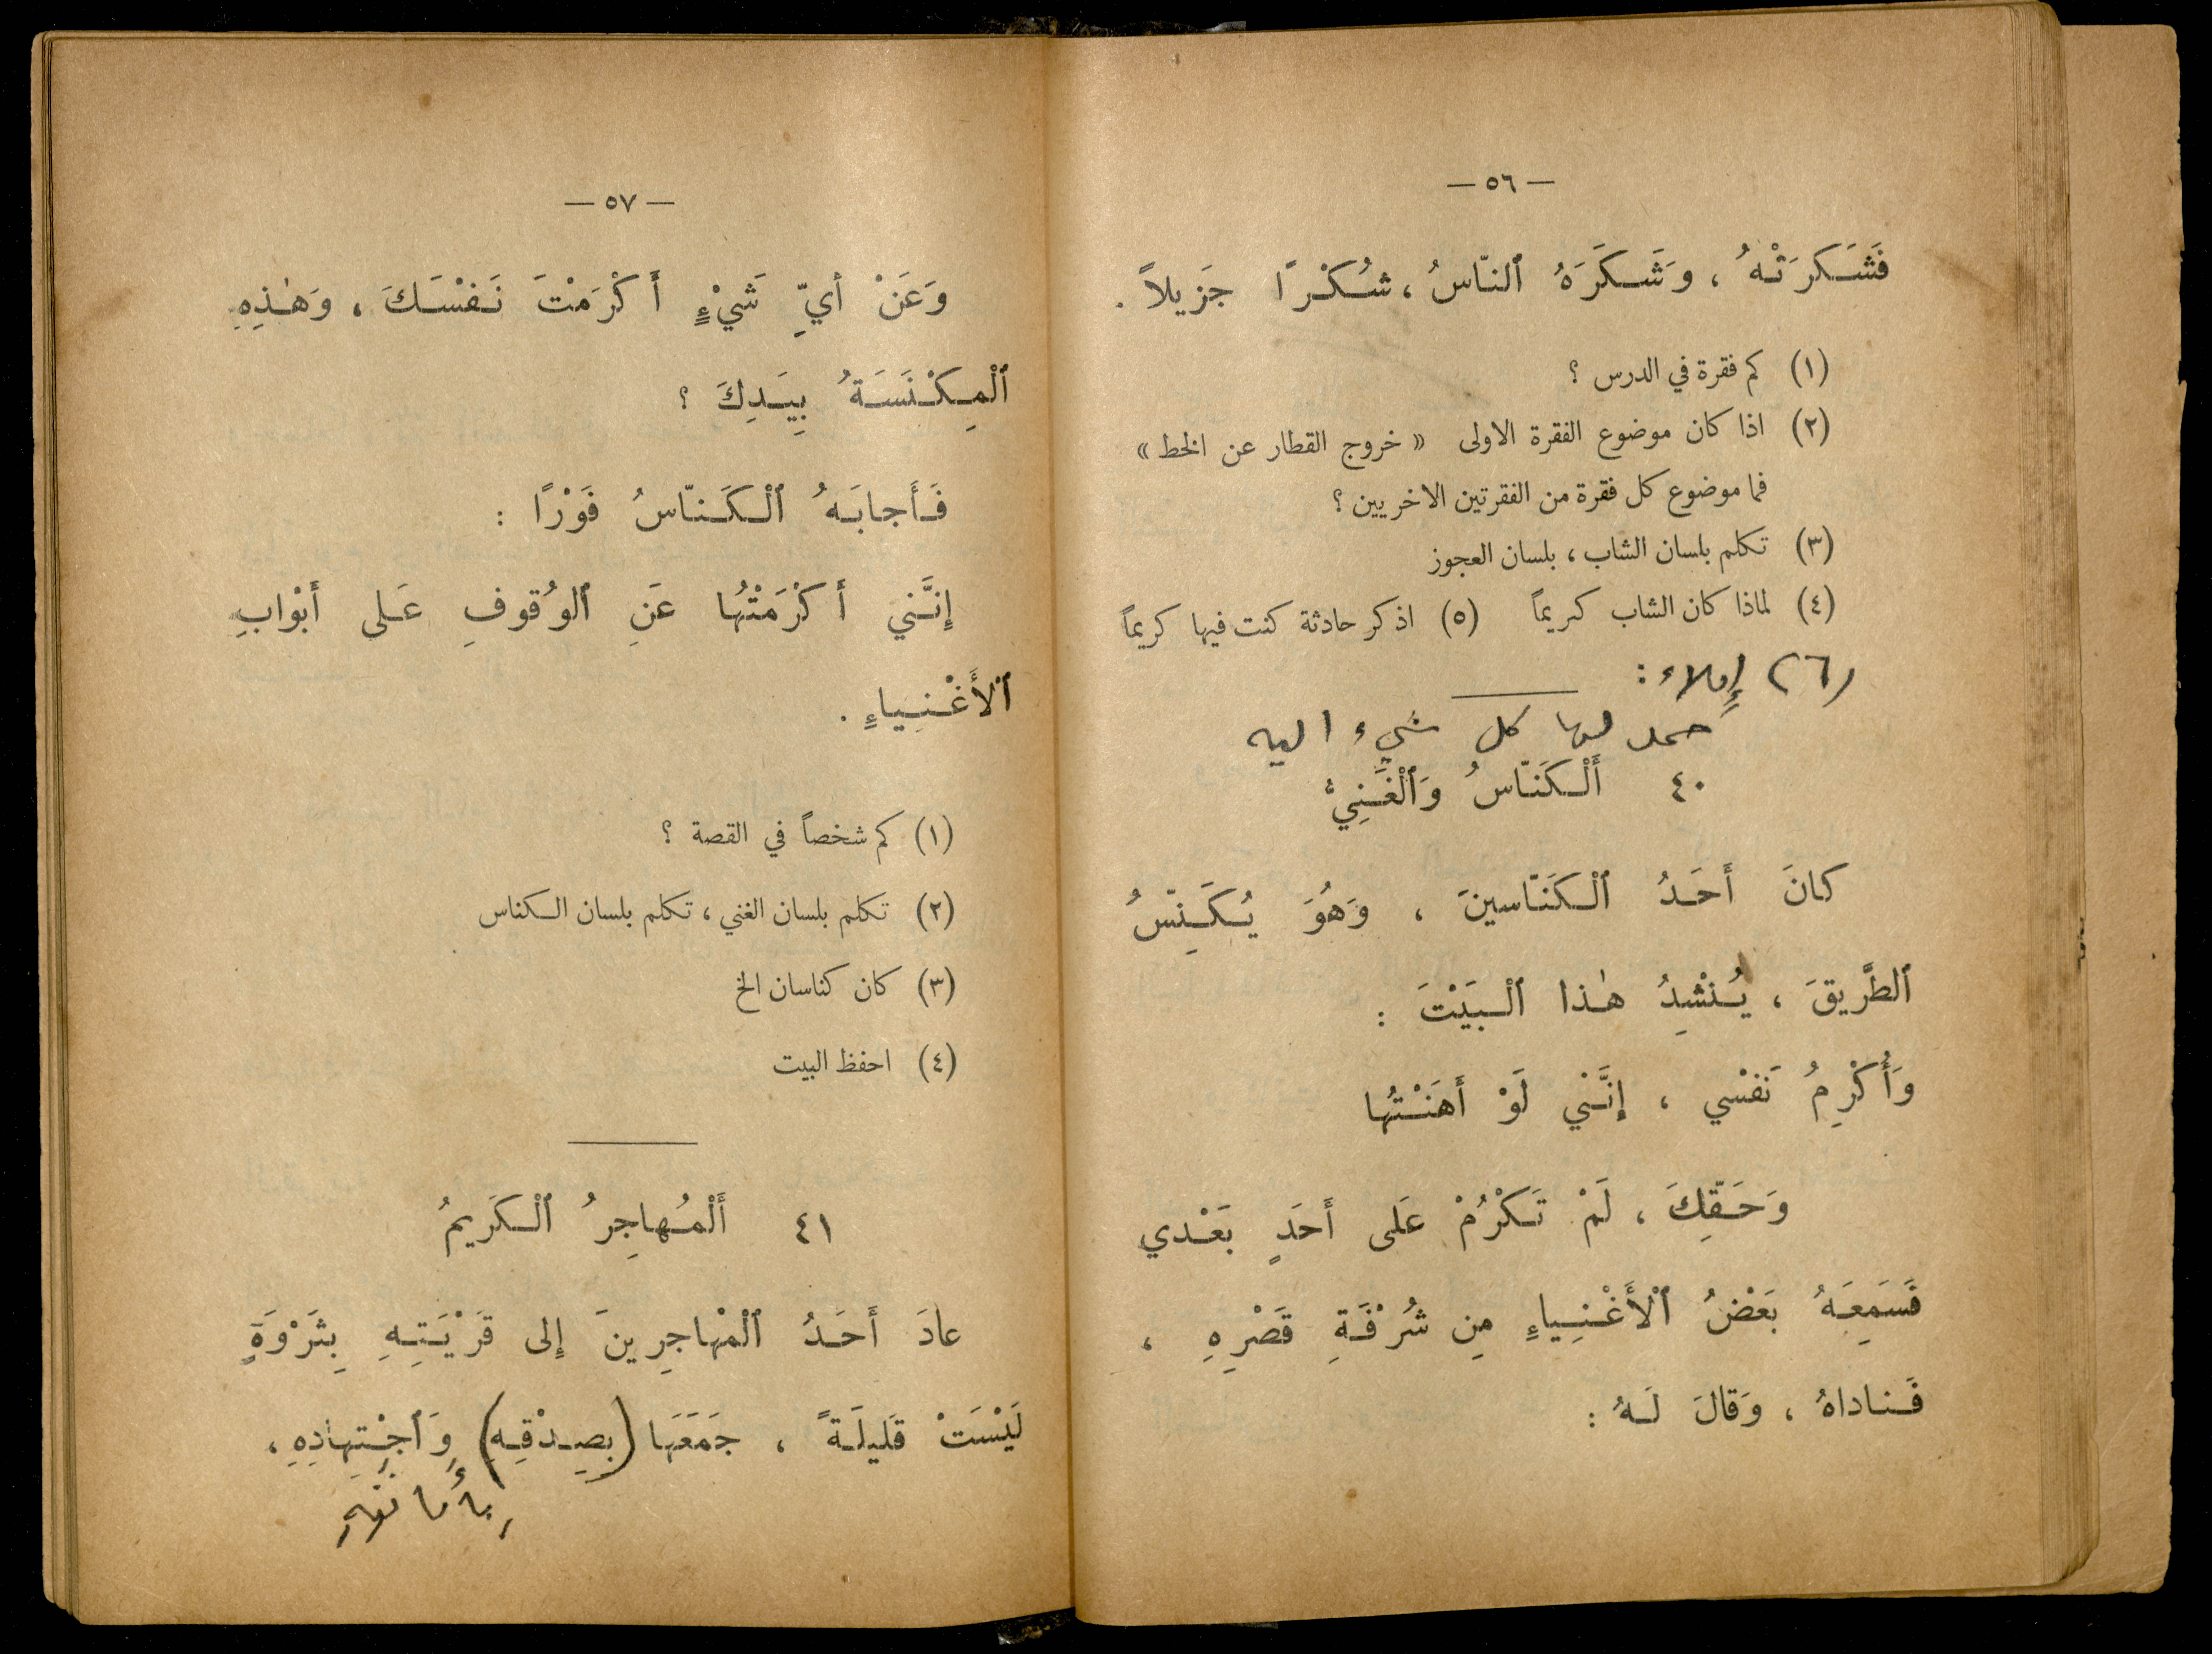 — ٥٦ —
فَشَكَرَتْهُ ، وَشَكَرَهُ ٱلنّاسُ ، شُكْرًا جَزيلاً .
(١) كم فقرة في الدرس ؟
(٢) اذا كان موضوع الفقرة الاولى « خروج القطار عن الخط »
فما موضوع كل فقرة من الفقرتين الاخريين ؟
(٣) تكلم بلسان الشاب ، بلسان العجوز
(٤) لماذا كان الشاب كريماً (٥) اذكر حادثة كنت فيها كريماً
(٦) إملاء :
حمد لها كل شيء اليه
٤٠ أَلْكَنّاسُ وَٱلْغَنِيُّ
كانَ أَحَدُ ٱلْكَنّاسينَ ، وَهُوَ يُكَنِّسُ
ٱلطَّريقَ ، يُنْشِدُ هٰذا ٱلْبَيْتَ :
وَأُكْرِمُ نَفْسي ، إِنَّني لَوْ أَهَنْتُها
وَحَقِّكَ ، لَمْ تَكْرُمْ عَلى أَحَدٍ بَعْدي
فَسَمِعَهُ بَعْضُ ٱلْأَغْنِياءِ مِن شُرْفَةِ قَصْرِهِ ،
فَناداهُ ، وَقالَ لَهُ :
— ٥٧ —
وَعَنْ أَيِّ شَيْءٍ أَكْرَمْتَ نَفْسَكَ ، وَهٰذِهِ
ٱلْمِكْنَسَةُ بِيَدِكَ ؟
فَأَجابَهُ ٱلْكَنّاسُ فَوْرًا :
إِنَّني أَكْرَمْتُها عَنِ ٱلوُقوفِ عَلى أَبْوابِ
ٱلْأَغْنِياءِ .
(١) كم شخصاً في القصة ؟
(٢) تكلم بلسان الغني ، تكلم بلسان الكناس
(٣) كان كناسان الخ
(٤) احفظ البيت
٤١ أَلْمُهاجِرُ ٱلْكَريمُ
عادَ أَحَدُ ٱلْمُهاجِرِينَ إِلى قَرْيَتِهِ بِثَرْوَةٍ
لَيْسَتْ قَليلَةً ، جَمَعَها (بِصِدْقِهِ) وَٱجْتِهادِهِ ،
بِأمانتهِ